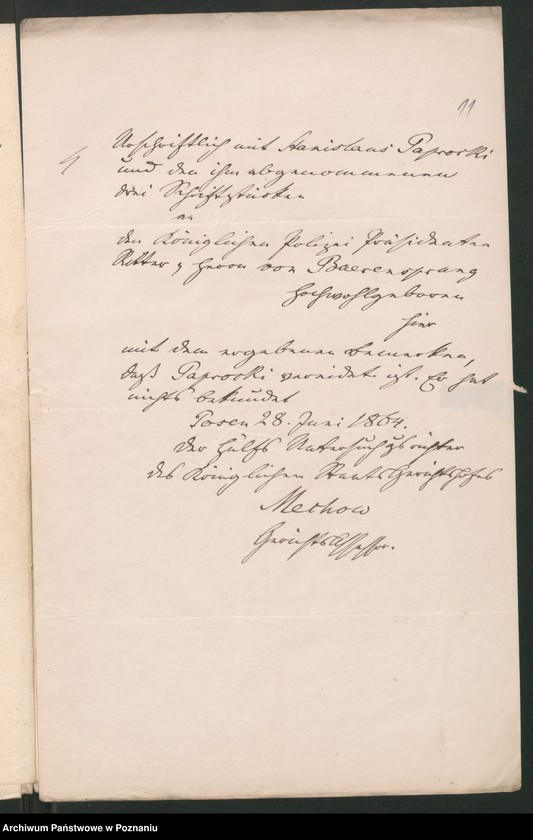 11
Urschriftlich mit Stanislaus Paprocki
und den ihm abgenommenen
drei Schriftstücken
an
den Königlichen Polizei Präsidenten
Ritter p Herrn von Baerensprung
Hochwohlgeboren
hier
mit dem ergebenen Bemerken,
daß Paprocki vereidet ist. Er hat
nichts bekundet
Posen 28. Juni 1864.
Der Hülfs Untersuchungsrichter
des Königlichen Staatsgerichtshofes
Mechow
Gerichts Assessor.
Archiwum Państwowe w Poznaniu